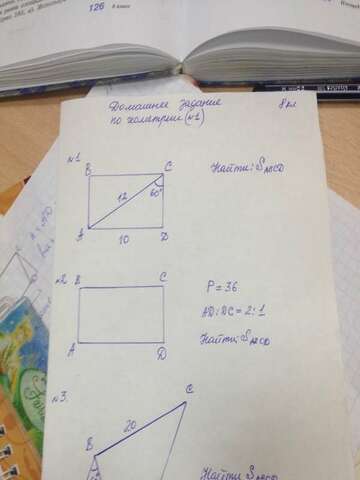 126 8 класс
Домашнее задание 8 кл
по геометрии (№1)
№1
B C
Найти: S ABCD
12 60°
A 10 D
№2
B C
P = 36
AD : DC = 2 : 1
Найти: S ABCD
A D
№3.
C
20
B
Найти S ABCD